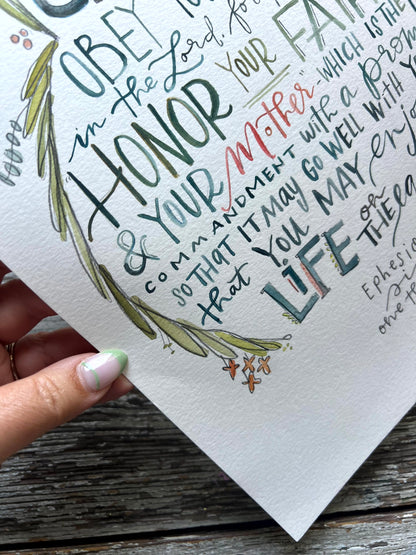 OBEY
in the Lord, for
"HONOR YOUR
& YOUR Mother" WHICH IS THE
COMMANDMENT with a
SO THAT IT MAY GO WELL WITH
that YOU MAY enjoy
LIFE on